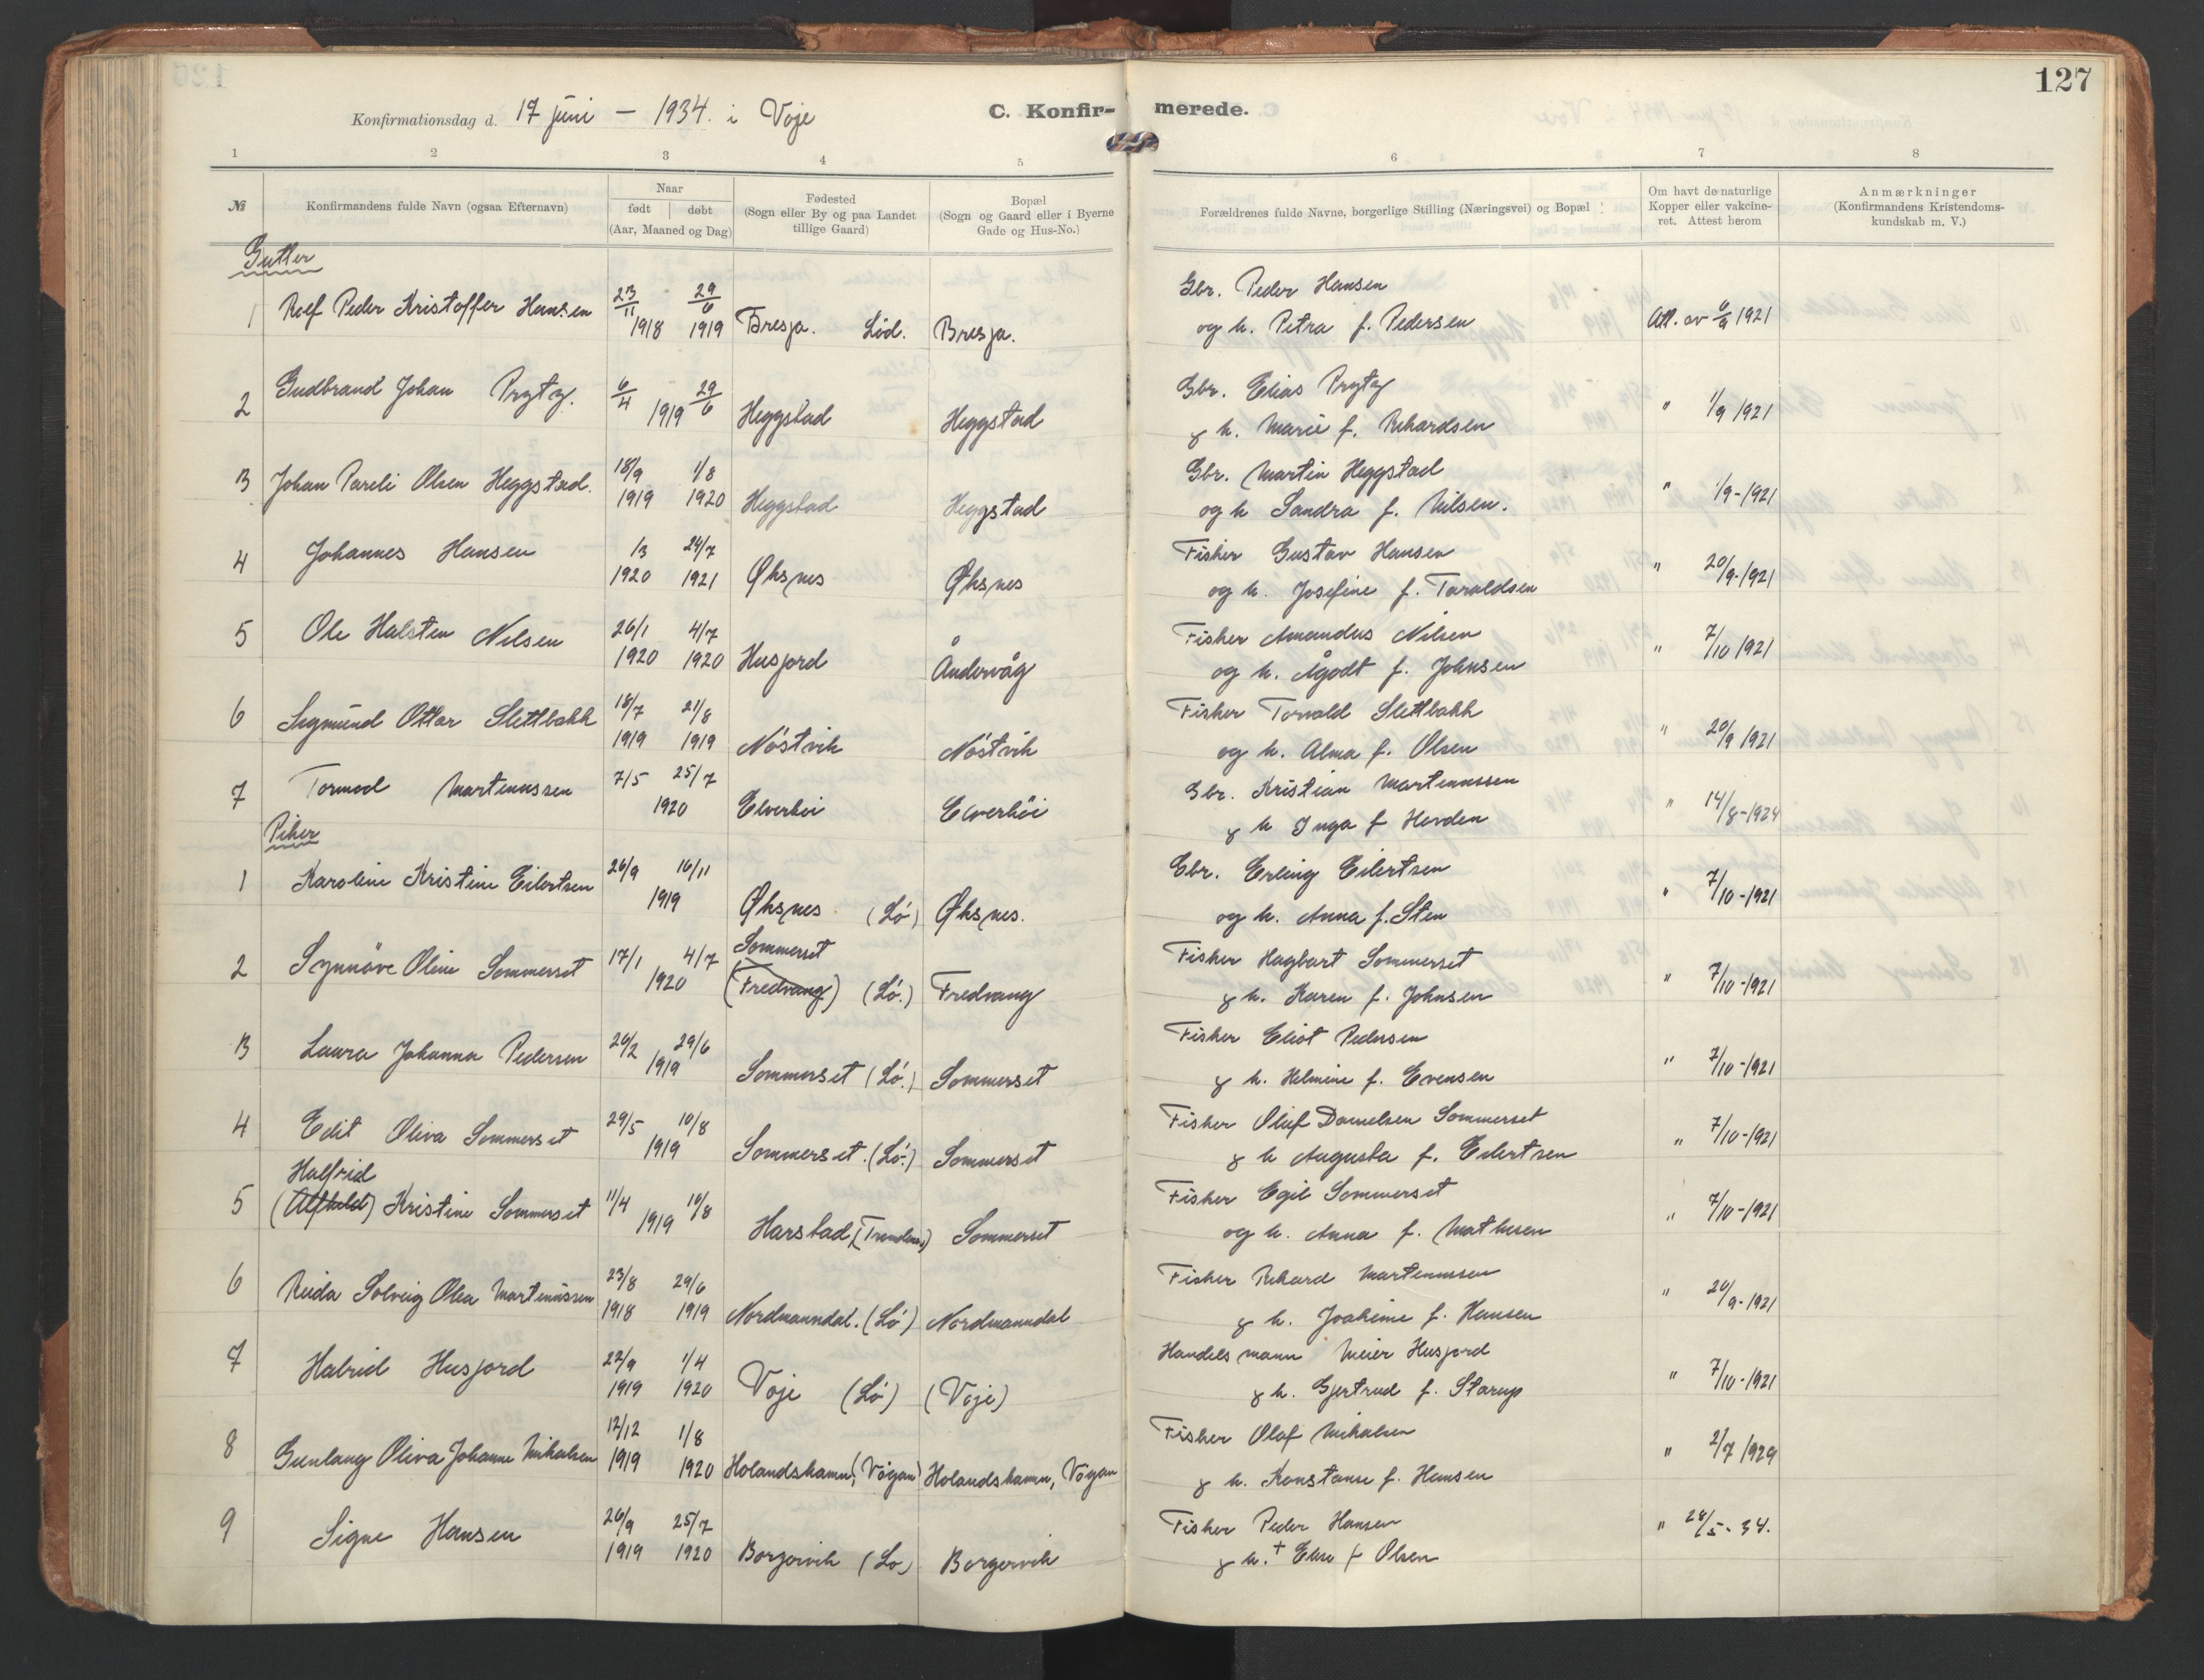 127
Konfirmationsdag d. 17 juni - 1934. i Vøje C. Konfir-merede.
1 2 3 4 5 6 7 8
№ Konfirmandens fulde Navn (ogsaa Efternavn) Naar født døbt (Aar, Maaned og Dag) Fødested (Sogn eller By og paa Landet tillige Gaard) Bopæl (Sogn og Gaard eller i Byerne Gade og Hus-No.) Forældrenes fulde Navne, borgerlige Stilling (Næringsvei) og Bopæl Om havt de naturlige Kopper eller vakcineret. Attest herom Anmærkninger (Konfirmandens Kristendomskundskab m. V.)
Gutter
1 Rolf Peder Kristoffer Hansen 23/11 1918 29/6 1919 Bresja. Lød. Bresja. Gbr. Peder Hansen
og h. Petra f. Pedersen Att. av 6/9 1921
2 Gudbrand Johan Prytz. 6/4 29/6 1919 Heggstad Heggstad Gbr. Elias Prytz
& h. Marie f. Rikardsen " 1/9 1921
3 Johan Pareli Olsen Heggstad. 18/9 1919 1/8 1920 Heggstad Heggstad Gbr. Martin Heggstad
og h Sandra f. Nilsen. " 1/9-1921
4 Johannes Hansen 1/3 1920 24/7 1921 Øksnes Øksnes Fisker Gustav Hansen
og h. Josefine f. Taraldsen " 20/9-1921
5 Ole Halsten Nilsen 26/1 1920 4/7 1920 Husjord Åndervåg Fisker Amandus Nilsen
og h. Ågodt f. Johnsen " 7/10 1921
6 Sigmund Ottar Slettbakk 18/7 1919 21/8 1919 Nøstvik Nøstvik Fisker Torvald Slettbakk
og h. Alma f. Olsen " 20/9 1921
7 Tormod Martinussen 7/5 25/7 1920 Elverhøi Elverhøi Gbr. Kristian Martinussen
& h Inga f Hovden " 14/8-1924
Piker
1 Karoline Kristine Eilertsen 26/9 16/11 1919 Øksnes (Lø) Øksnes. Gbr. Erling Eilertsen
og h. Anna f. Sten " 7/10-1921
2 Synnøve Oline Sommerset 17/1 4/7 1920 Sommerset (Fredvang) (Lø.) Fredvang Fisker Hagbart Sommerset
& h. Karen f. Johnsen " 7/10-1921
3 Laura Johanna Pedersen 26/2 29/6 1919 Sommerset (Lø.) Sommerset Fisker Eliot Pedersen
& h. Helmine f. Evensen " 7/10-1921
4 Edit Oliva Sommerset 29/5 10/8 1919 Sommerset. (Lø.) Sommerset Fisker Oluf Danielsen Sommerset
& h Augusta f. Eilertsen " 7/10-1921
5 Halfrid (Alfhild) Kristine Sommerset 11/4 10/8 1919 Harstad, (Trondenes) Sommerset Fisker Egil Sommerset
og h. Anna f. Mathisen " 7/10-1921
6 Solveig Olea Martinussen 23/8 1918 29/6 1919 Nordmanndal. (Lø) Nordmanndal Fisker Rikard Martinussen
& h. Joakime f. Hansen " 20/9-1921
7 Halrid Husjord 22/9 1919 1/4 1920 Vøje (Lø) (Vøje) Handelsmann Meier Husjord
& h. Gjertrud f. Starup " 7/10-1921
8 Gunlaug Oliva Johanne Mikalsen 12/12 1919 1/8 1920 Holandshamn, (Vågan) Holandshamn, Vågan Fisker Olaf Mikalsen
& h. Konstanse f. Hansen " 2/7 1929
9 Signe Hansen 26/9 1919 25/7 1920 Borgervik (Lø) Borgervik Fisker Peder Hansen
& h. + Elise f Olsen " 28/5-34.